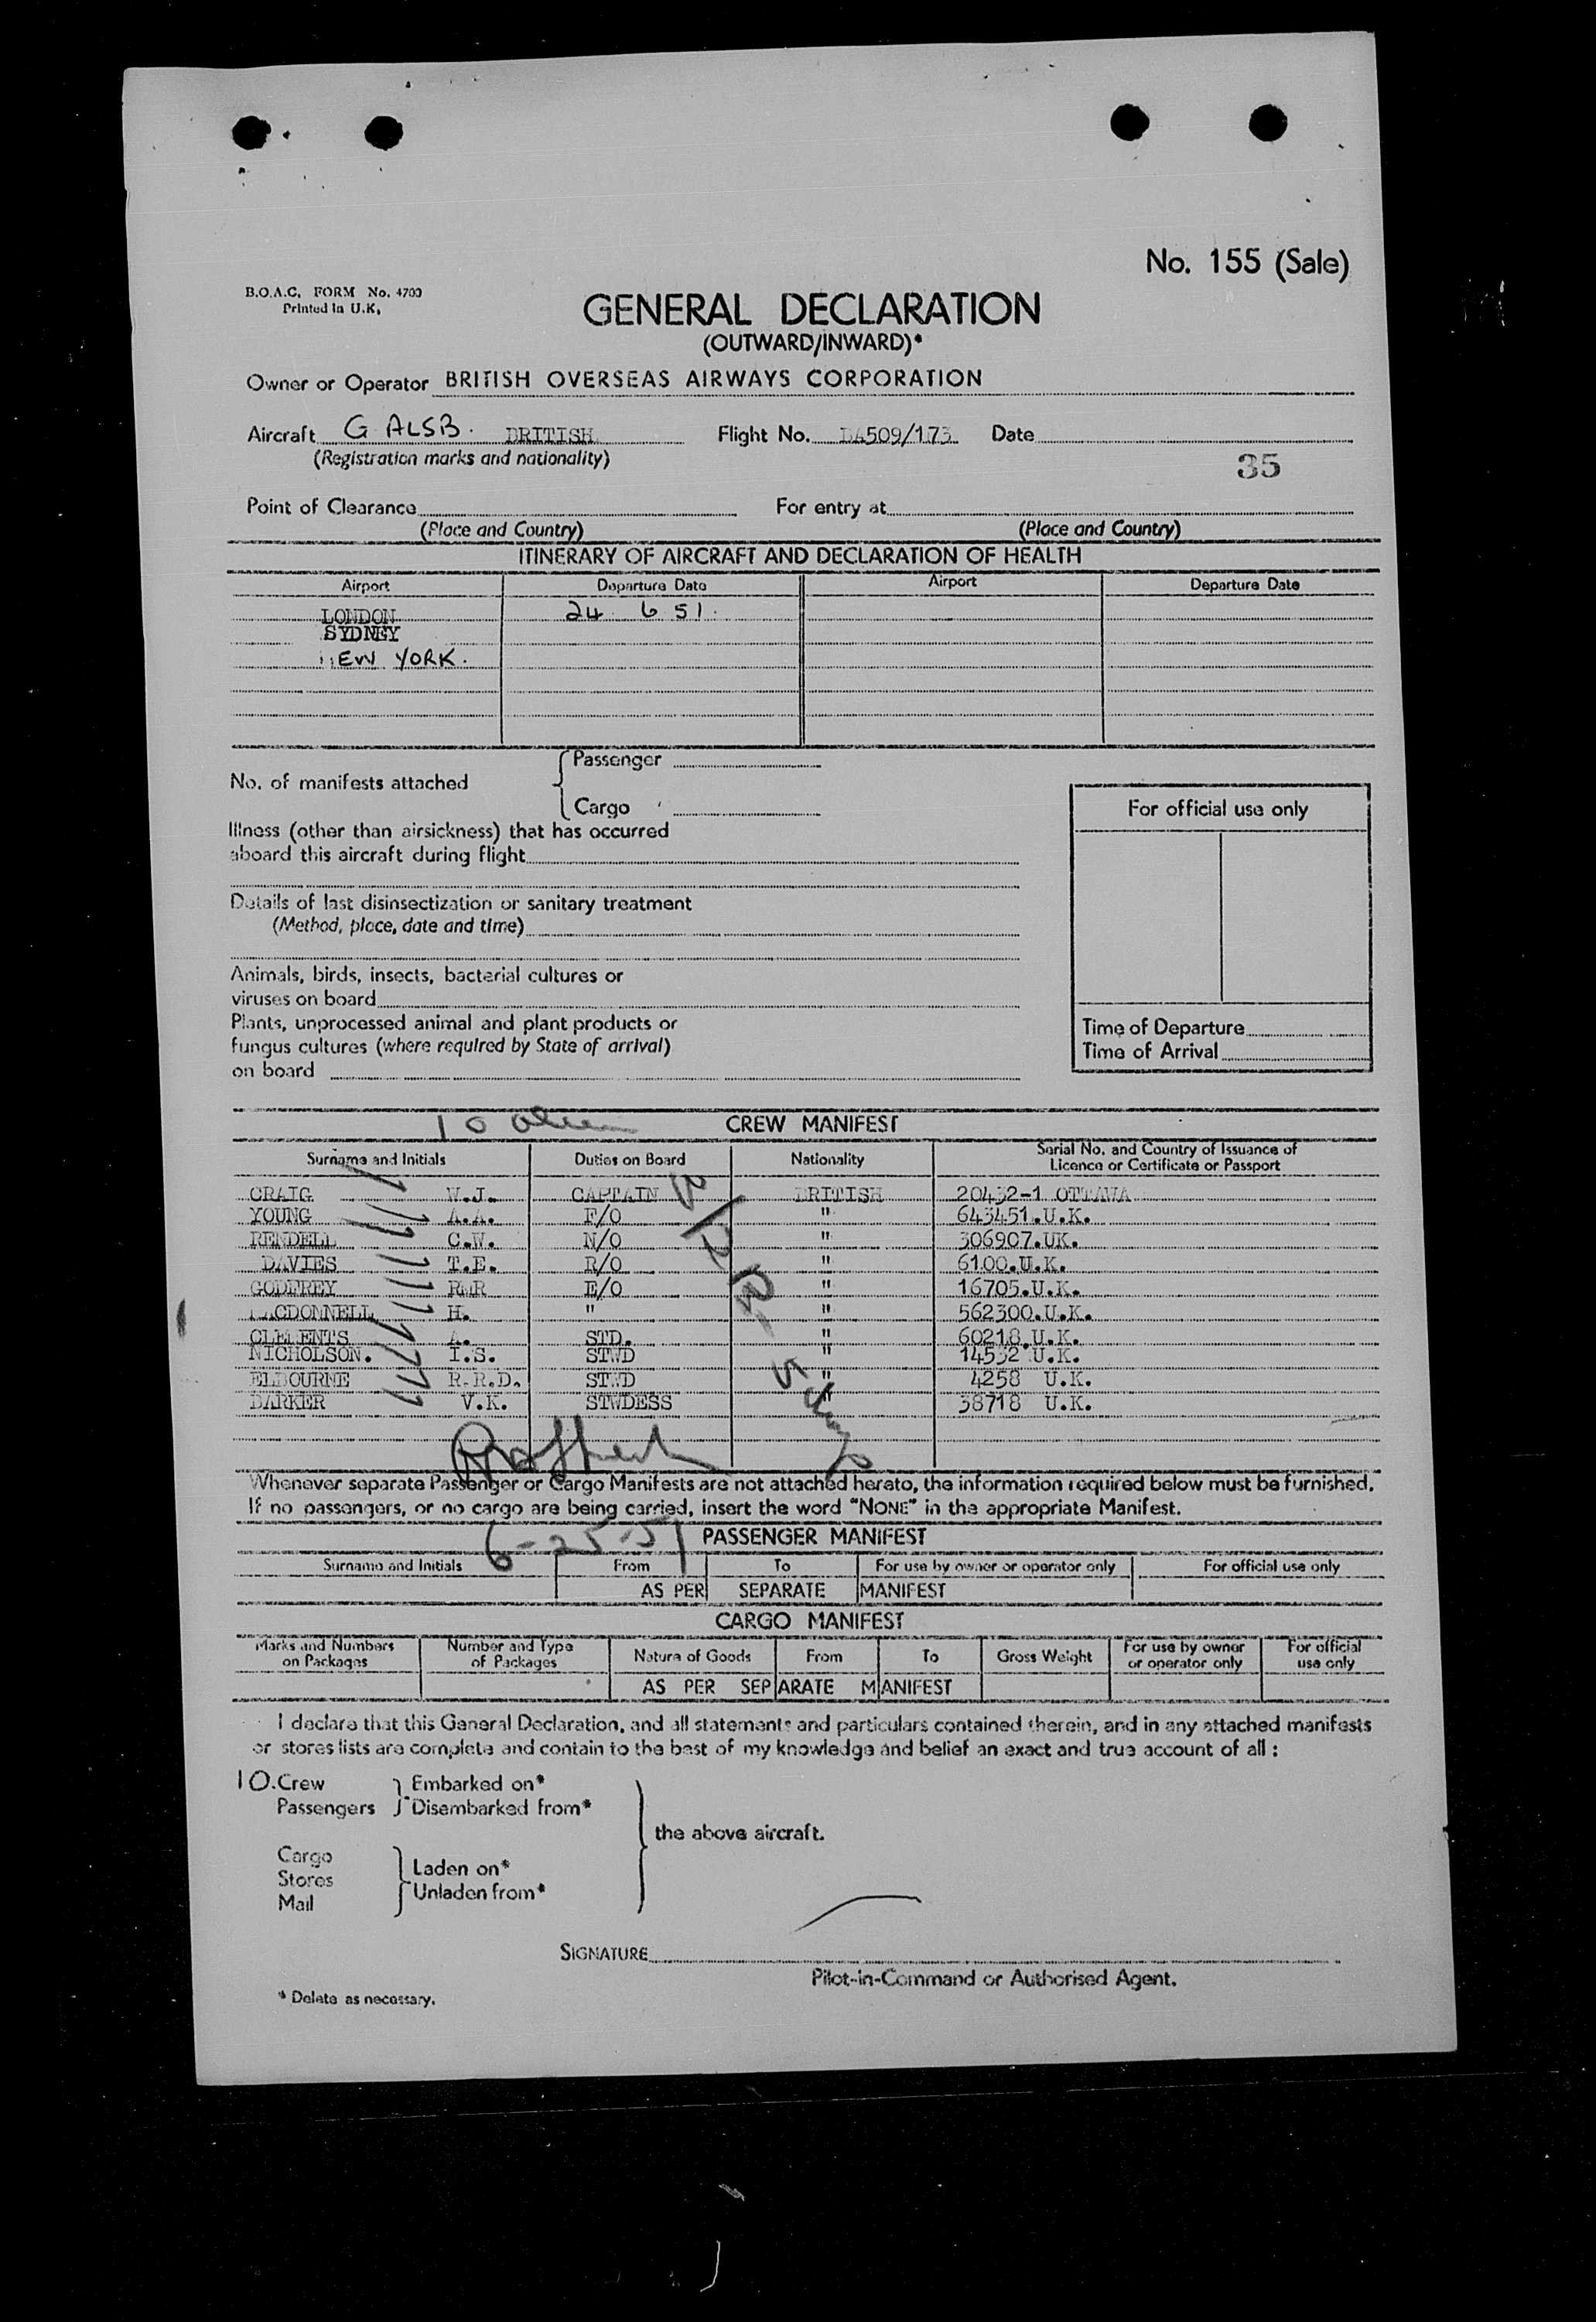 No. 155 (Sale)
B.O.A.C. FORM No. 4700
Printed in U.K.
GENERAL DECLARATION
(OUTWARD/INWARD)*
Owner or Operator BRITISH OVERSEAS AIRWAYS CORPORATION
Aircraft G ALSB. BRITISH Flight No. BA509/173 Date
(Registration marks and nationality)
35
Point of Clearance For entry at
(Place and Country) (Place and Country)
ITINERARY OF AIRCRAFT AND DECLARATION OF HEALTH
Airport Departure Date Airport Departure Date
LONDON 24 6 51.
SYDNEY
NEW YORK.
No. of manifests attached { Passenger
Cargo
Illness (other than airsickness) that has occurred
aboard this aircraft during flight
For official use only
Details of last disinsectization or sanitary treatment
(Method, place, date and time)
Animals, birds, insects, bacterial cultures or
viruses on board
Plants, unprocessed animal and plant products or
fungus cultures (where required by State of arrival)
on board
Time of Departure
Time of Arrival
10
CREW MANIFEST
Surname and Initials Duties on Board Nationality Serial No. and Country of Issuance of
Licence or Certificate or Passport
CRAIG W.J. CAPTAIN BRITISH 20432-1 OTTAWA
YOUNG A.A. F/O " 643451.U.K.
RENDELL C.W. N/O " 306907.UK.
DAVIES T.E. R/O " 6100.U.K.
GODFREY R.R E/O " 16705.U.K.
MACDONNELL H. " " 562300.U.K.
CLEMENTS A. STD. " 60218.U.K.
NICHOLSON. I.S. STWD " 14532 U.K.
ELBOURNE R.R.D. STWD " 4258 U.K.
BARKER V.K. STWDESS " 38718 U.K.
Whenever separate Passenger or Cargo Manifests are not attached hereto, the information required below must be furnished.
If no passengers, or no cargo are being carried, insert the word "NONE" in the appropriate Manifest.
6-25-51
PASSENGER MANIFEST
Surname and Initials From To For use by owner or operator only For official use only
AS PER SEPARATE MANIFEST
CARGO MANIFEST
Marks and Numbers on Packages Number and Type of Packages Nature of Goods From To Gross Weight For use by owner or operator only For official use only
AS PER SEPARATE MANIFEST
I declare that this General Declaration, and all statements and particulars contained therein, and in any attached manifests
or stores lists are complete and contain to the best of my knowledge and belief an exact and true account of all :
10. Crew } Embarked on*
Passengers } Disembarked from*
the above aircraft.
Cargo
Stores } Laden on*
Mail } Unladen from*
SIGNATURE
Pilot-in-Command or Authorised Agent.
* Delete as necessary.